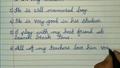 4) He is well mannered boy.
5) He is very good in his studies
6) I play with my best friend at
lunch break time.
7) All of my teachers love him very